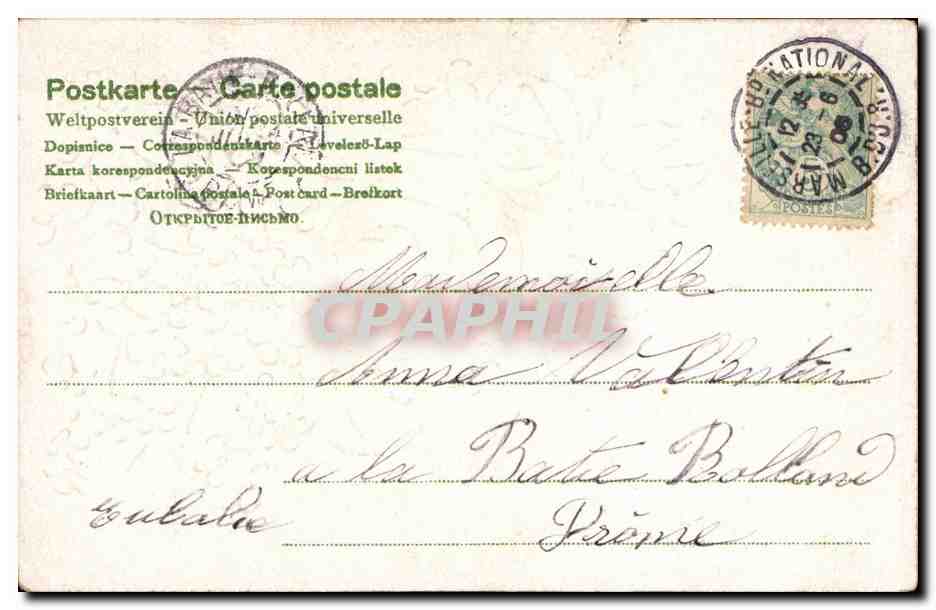 Postkarte — Carte postale
Weltpostverein — Union postale universelle
Dopisnice — Correspondenzkarte — Levelező-Lap
Karta korespondencyjna — Korespondencni listek
Briefkaart — Cartolina postale — Post card — Brefkort
Открытое-Письмо.
MARSEILLE-Bd NATIONAL B DU R.
12 23 - 6 06
POSTES
Mademoiselle
CPAPHIL
Anna Vallentin
a la Batie Rolland
Drôme
Eulalie